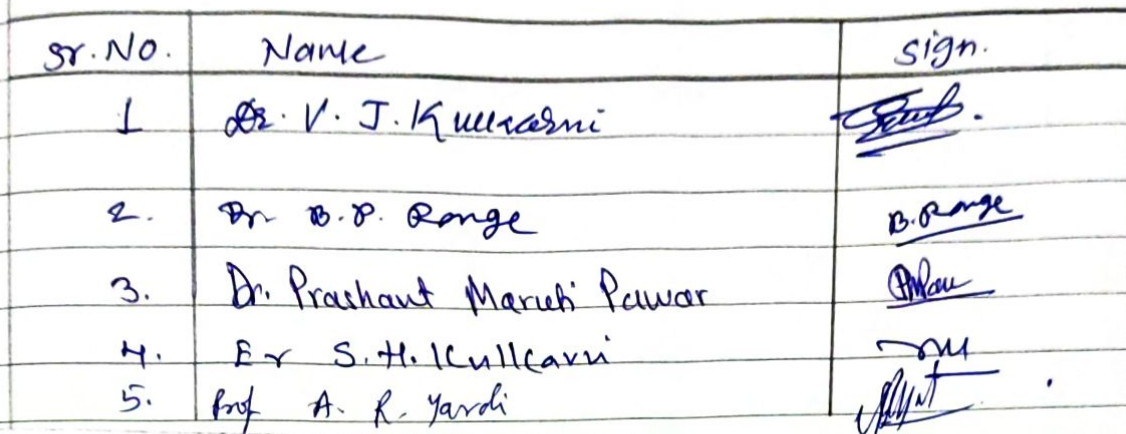 Sr. No. Name Sign.
1 Dr. V. J. Kulkarni
2. Dr B. P. Ronge B. Ronge
3. Dr. Prashant Maruti Pawar
4. Er S. H. Kulkarni
5. Prof A. R. Yardi